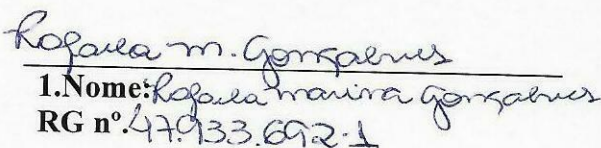 Rafaela M. Gonçalves
1.Nome: Rafaela Marina Gonçalves
RG nº. 47.933.692-1